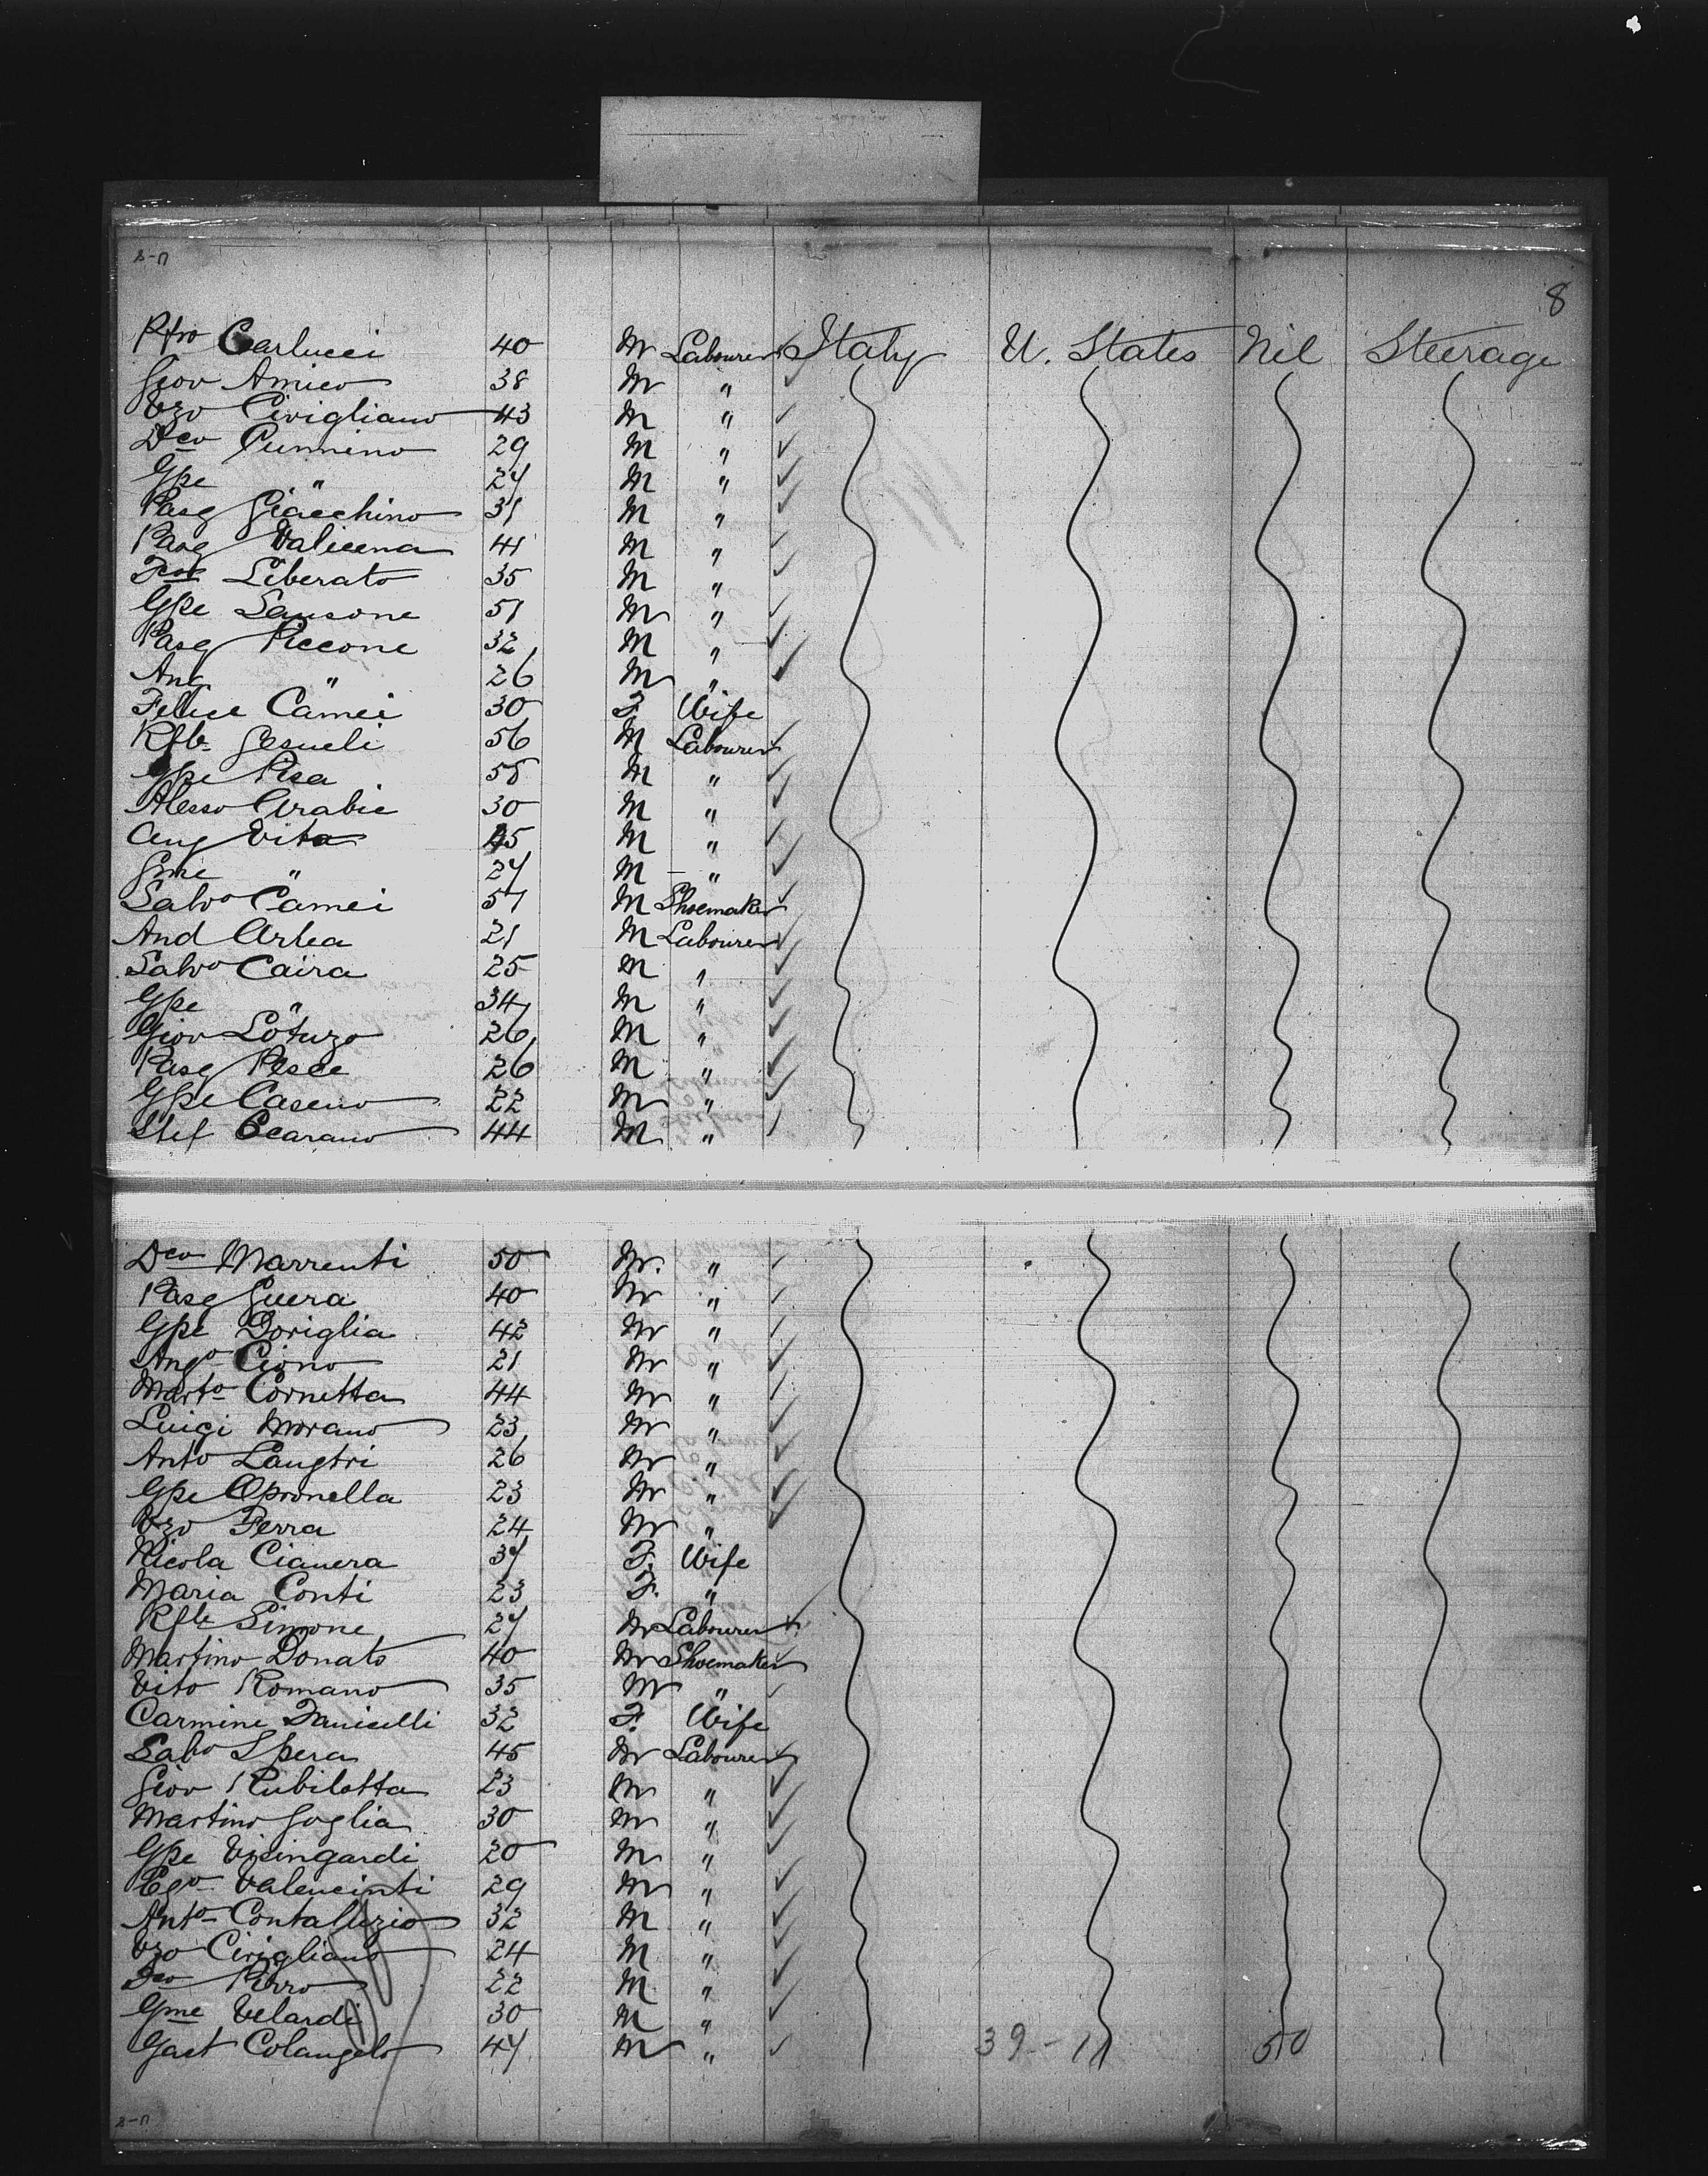 8
Ptro Carlucci 40 M Labourer Italy U. States Nil Steerage
Giov Amico 38 M "
Vzo Cirigliano 43 M "
Dco Cunnino 29 M "
Gpe " 27 M "
Pasq Giacchino 31 M "
Pasq Valicena 41 M "
Liberato 35 M "
Gpe Sansone 51 M "
Pasq Piccone 32 M "
Ang " 26 M "
Felice Camei 30 F Wife
Rfle Gesueli 56 M Labourer
Gpe Pisa 58 M "
Alesso Arabie 30 M "
Ang Vita 45 M "
Gme " 27 M "
Salvo Camei 57 M Shoemaker
And Arlea 21 M Labourer
Salvo Caira 25 M "
Gpe " 34 M "
Giov Loturzo 26 M "
Pasq Pesce 26 M "
Gpe Caseno 22 M "
Stef Scarano 44 M "
Dco Marrenti 50 M. "
Pasq Guera 40 M "
Gpe Doriglia 42 M "
Ango Ciono 21 M "
Marto Cornetta 44 M "
Luigi Morano 23 M "
Anto Langtri 26 M "
Gpe Opronella 23 M "
Vzo Ferra 24 M "
Nicola Cianera 37 F. Wife
Maria Conti 23 F. "
Rfle Simone 27 M Labourer
Martino Donato 40 M Shoemaker
Vito Romano 35 M "
Carmine Faniselli 32 F. Wife
Salvo Spera 45 M Labourer
Giov Rubilotta 23 M "
Martino Goglia 30 M "
Gpe Visingardi 20 M "
Valencinti 29 M "
Anto Contaluzio 32 M "
Vzo Cirigliano 24 M "
Fco Pirro 22 M "
Gme Velardi 30 M "
Gaet Colangelo 47 M " 39-11 50